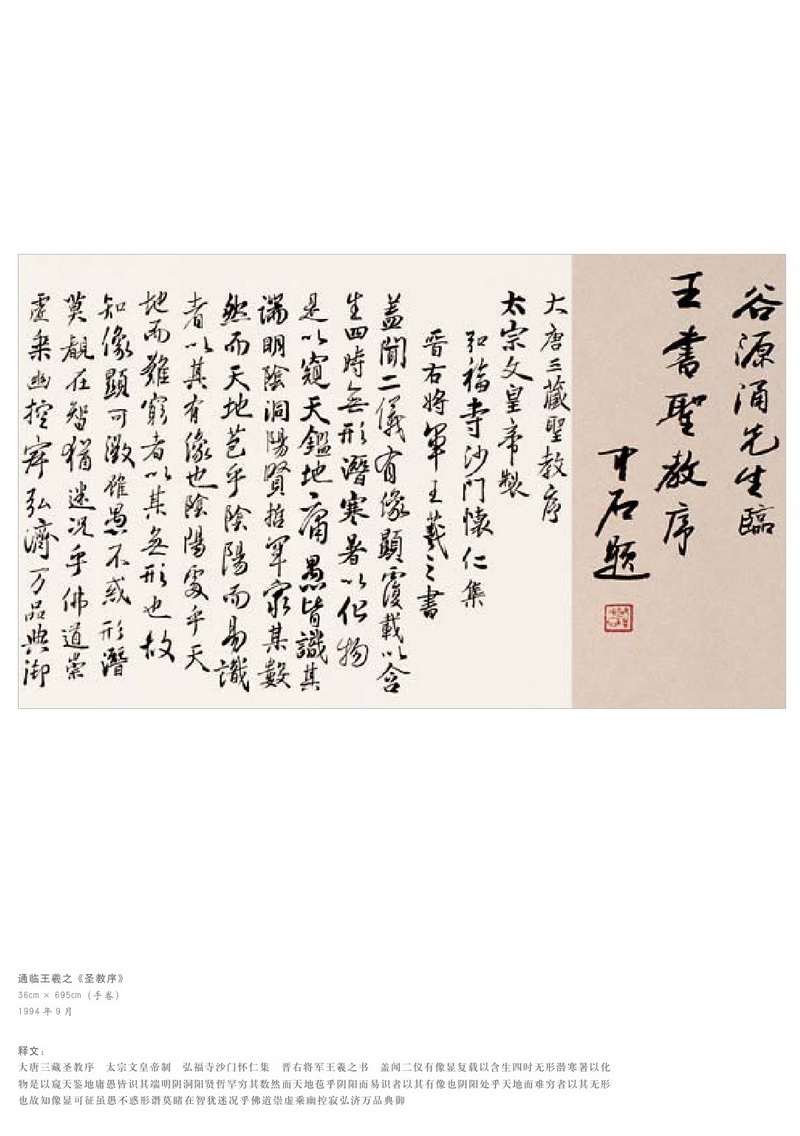 谷源涌先生臨
王書聖教序
中石题
大唐三藏聖教序
太宗文皇帝製
弘福寺沙門懷仁集
晉右將軍王羲之書
蓋聞二儀有像顯覆載以含
生四時無形潛寒暑以化物
是以窺天鑑地庸愚皆識其
端明陰洞陽賢哲罕窮其數
然而天地苞乎陰陽而易識
者以其有像也陰陽處乎天
地而難窮者以其無形也故
知像顯可徵雖愚不惑形潛
莫覩在智猶迷況乎佛道崇
虛乘幽控寂弘濟万品典御
通临王羲之《圣教序》
36cm × 695cm（手卷）
1994 年 9 月
释文：
大唐三藏圣教序　太宗文皇帝制　弘福寺沙门怀仁集　晋右将军王羲之书　盖闻二仪有像显复载以含生四时无形潜寒暑以化
物是以窥天鉴地庸愚皆识其端明阴洞阳贤哲罕穷其数然而天地苞乎阴阳而易识者以其有像也阴阳处乎天地而难穷者以其无形
也故知像显可征虽愚不惑形潜莫睹在智犹迷况乎佛道崇虚乘幽控寂弘济万品典御